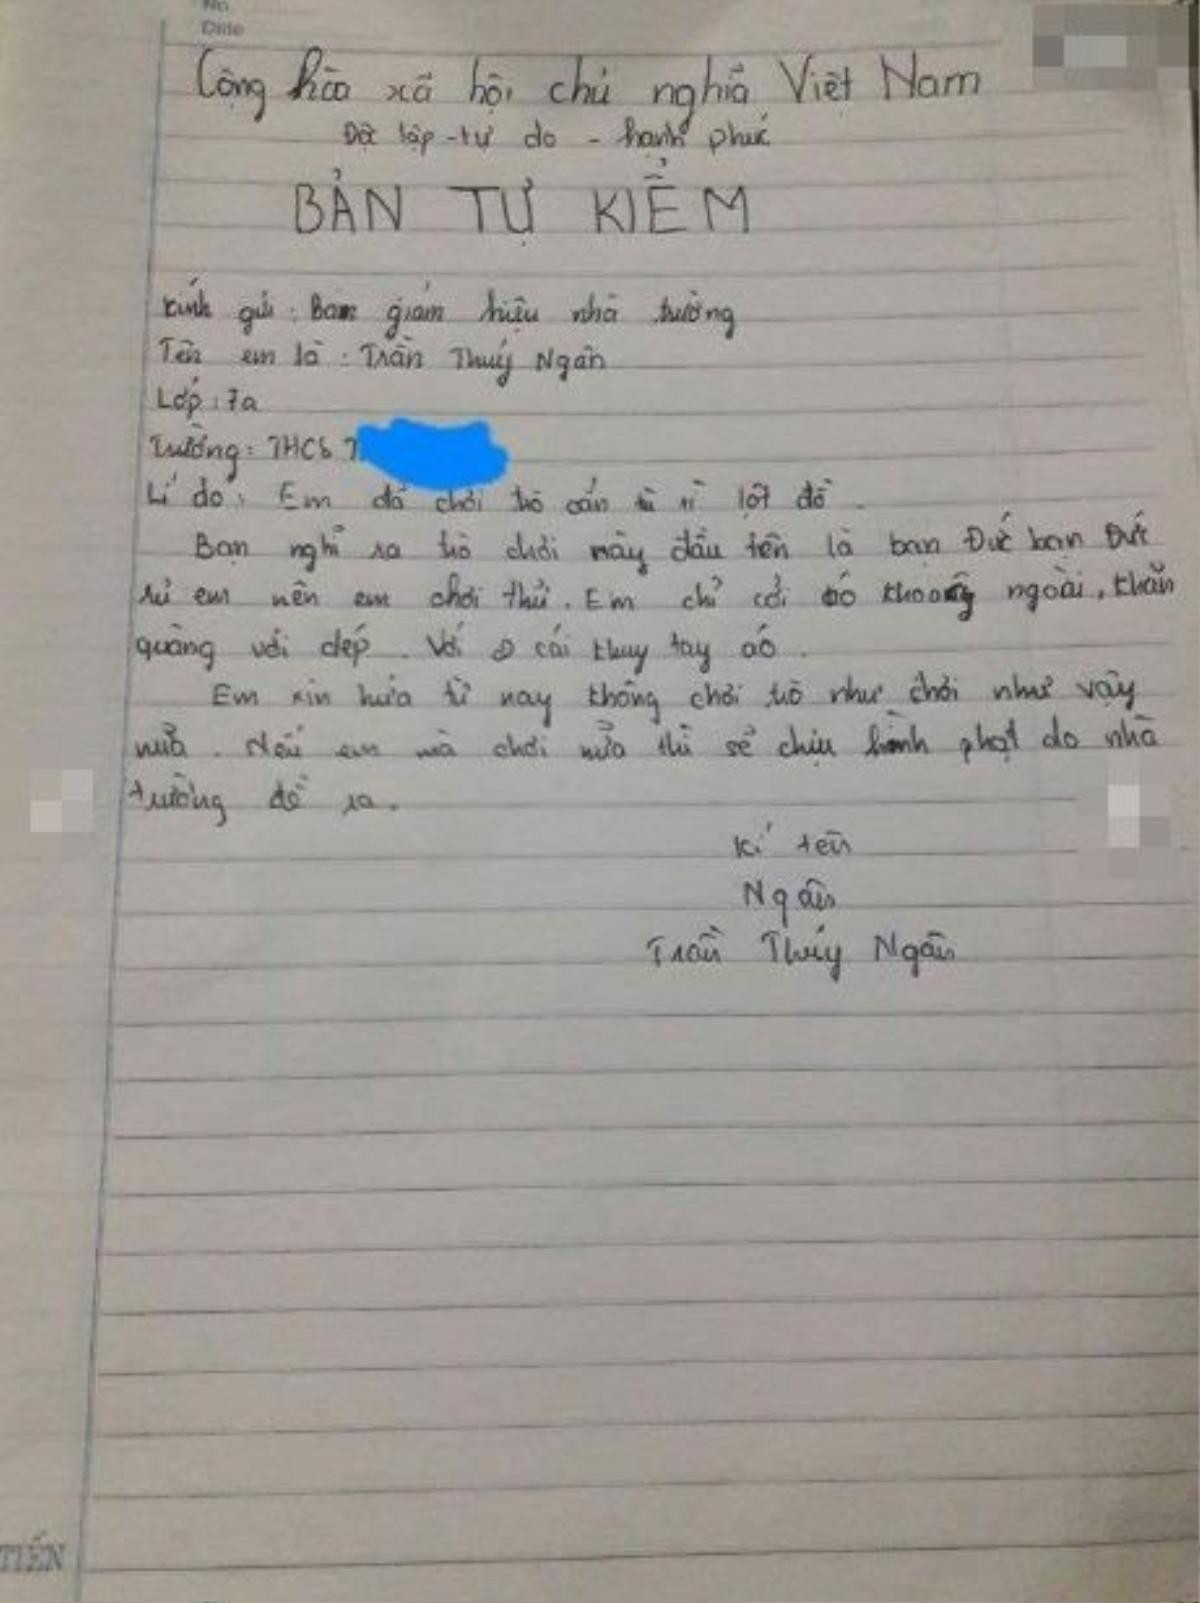 No.
Date
Cộng hòa xã hội chủ nghĩa Việt Nam
Độc lập - tự do - hạnh phúc
BẢN TỰ KIỂM
Kính gửi : Ban giám hiệu nhà trường
Tên em là : Trần Thuý Ngân
Lớp : 7a
Trường : THCS T
Lí do : Em đã chơi trò oẳn tù tì lột đồ .
Bạn nghĩ ra trò chơi này đầu tên là bạn Đức bạn Đức
rủ em nên em chơi thử . Em chỉ cởi áo khoác ngoài , khăn
quàng với dép . Với cái thuy tay áo .
Em xin hứa từ nay không chơi trò như chơi như vậy
nữa . Nếu em mà chơi nữa thì sẽ chịu hình phạt do nhà
trường đề ra .
Kí tên
Ngân
Trần Thúy Ngân
TIẾN